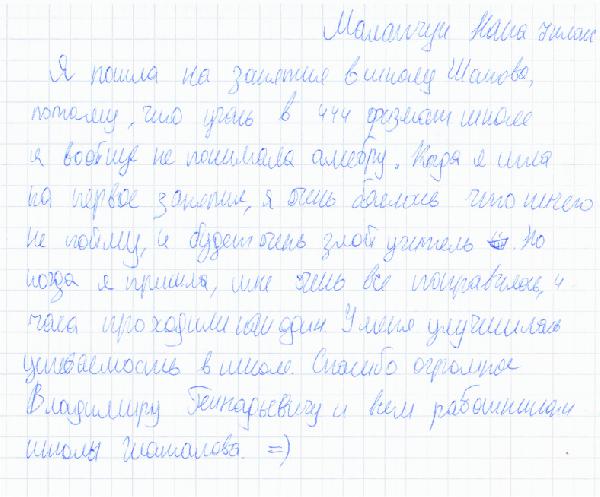 Маланчук Настя 7 класс
Я пошла на занятия в школу Шатова,
потому, что учась в 444 физмат школе
я вообще не понимала алгебру. Когда я шла
на первое занятие, я очень боялась что ничего
не пойму, и будет очень злой учитель. Но
когда я пришла, мне очень все понравилось, 4
часа проходили как один. У меня улучшилась
успеваемость в школе. Спасибо огромное
Владимиру Геннадьевичу и всем работникам
школы Шаталова. =)